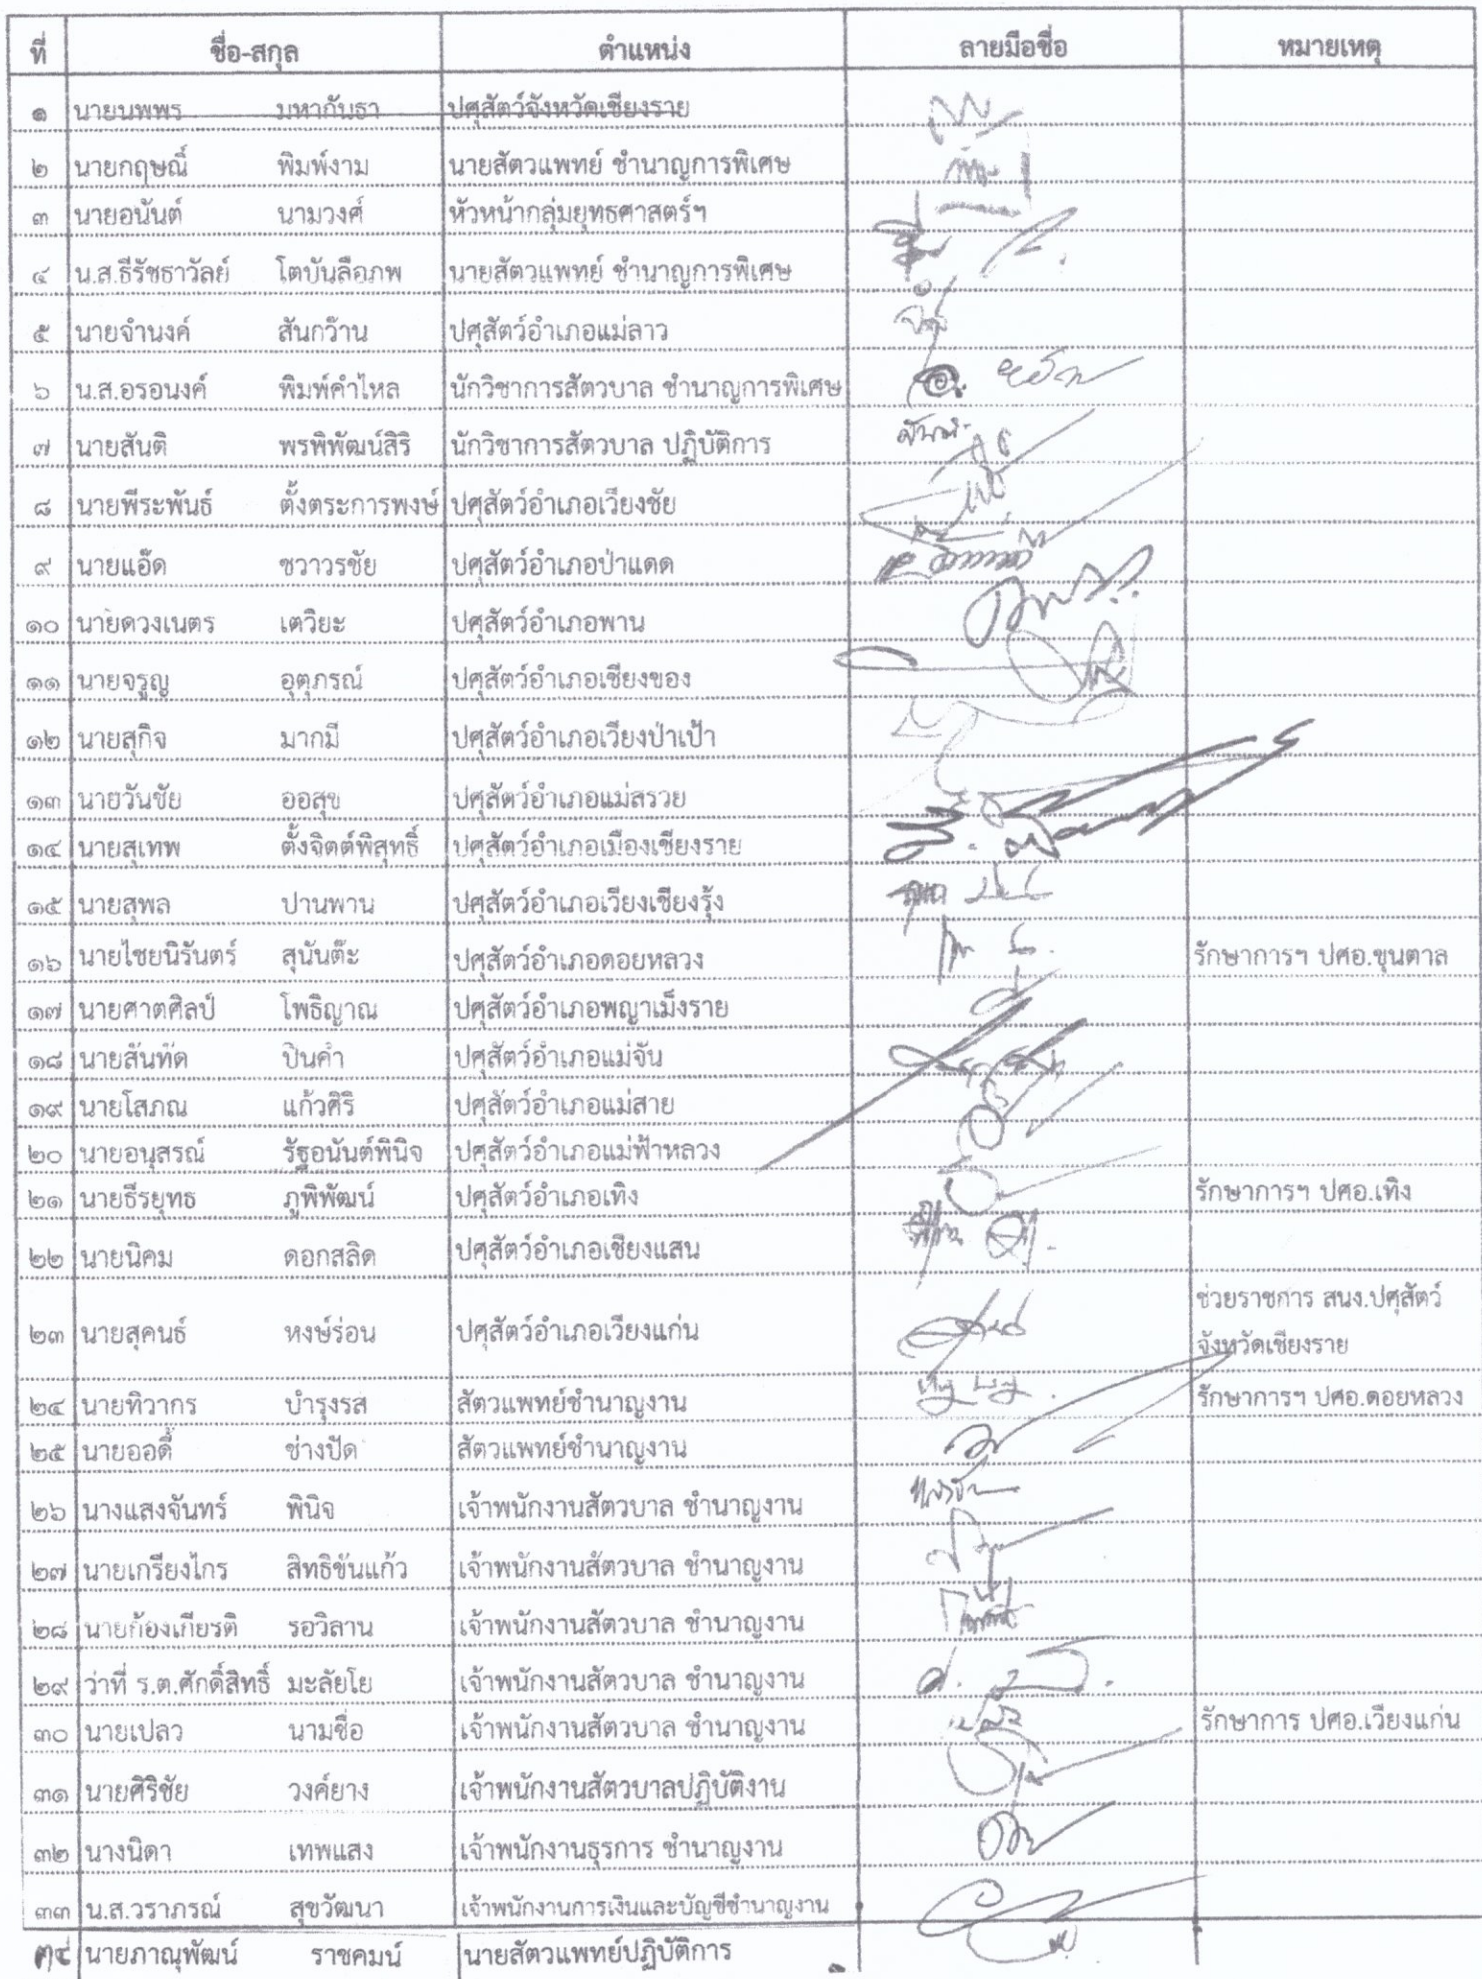 ที่ ชื่อ-สกุล ตำแหน่ง ลายมือชื่อ หมายเหตุ
๑ นายนพพร มหากันธา ปศุสัตว์จังหวัดเชียงราย
๒ นายกฤษณิ์ พิมพ์งาม นายสัตวแพทย์ ชำนาญการพิเศษ
๓ นายอนันต์ นามวงศ์ หัวหน้ากลุ่มยุทธศาสตร์ฯ
๔ น.ส.ธีรัชธาวัลย์ โตบันลือภพ นายสัตวแพทย์ ชำนาญการพิเศษ
๕ นายจำนงค์ สันกว๊าน ปศุสัตว์อำเภอแม่ลาว
๖ น.ส.อรอนงค์ พิมพ์คำไหล นักวิชาการสัตวบาล ชำนาญการพิเศษ
๗ นายสันติ พรพิพัฒน์สิริ นักวิชาการสัตวบาล ปฏิบัติการ
๘ นายพีระพันธ์ ตั้งตระการพงษ์ ปศุสัตว์อำเภอเวียงชัย
๙ นายแอ๊ด ชวาวรชัย ปศุสัตว์อำเภอป่าแดด
๑๐ นายดวงเนตร เตวิยะ ปศุสัตว์อำเภอพาน
๑๑ นายจรูญ อุตุภรณ์ ปศุสัตว์อำเภอเชียงของ
๑๒ นายสุกิจ มากมี ปศุสัตว์อำเภอเวียงป่าเป้า
๑๓ นายวันชัย ออสุข ปศุสัตว์อำเภอแม่สรวย
๑๔ นายสุเทพ ตั้งจิตต์พิสุทธิ์ ปศุสัตว์อำเภอเมืองเชียงราย
๑๕ นายสุพล ปานพาน ปศุสัตว์อำเภอเวียงเชียงรุ้ง
๑๖ นายไชยนิรันตร์ สุนันต๊ะ ปศุสัตว์อำเภอดอยหลวง รักษาการฯ ปศอ.ขุนตาล
๑๗ นายศาตศิลป์ โพธิญาณ ปศุสัตว์อำเภอพญาเม็งราย
๑๘ นายสันทัด ปินคำ ปศุสัตว์อำเภอแม่จัน
๑๙ นายโสภณ แก้วศิริ ปศุสัตว์อำเภอแม่สาย
๒๐ นายอนุสรณ์ รัฐอนันต์พินิจ ปศุสัตว์อำเภอแม่ฟ้าหลวง
๒๑ นายธีรยุทธ ภูพิพัฒน์ ปศุสัตว์อำเภอเทิง รักษาการฯ ปศอ.เทิง
๒๒ นายนิคม ดอกสลิด ปศุสัตว์อำเภอเชียงแสน
๒๓ นายสุคนธ์ หงษ์ร่อน ปศุสัตว์อำเภอเวียงแก่น ช่วยราชการ สนง.ปศุสัตว์
จังหวัดเชียงราย
๒๔ นายทิวากร บำรุงรส สัตวแพทย์ชำนาญงาน รักษาการฯ ปศอ.ดอยหลวง
๒๕ นายออดี้ ช่างปัด สัตวแพทย์ชำนาญงาน
๒๖ นางแสงจันทร์ พินิจ เจ้าพนักงานสัตวบาล ชำนาญงาน
๒๗ นายเกรียงไกร สิทธิขันแก้ว เจ้าพนักงานสัตวบาล ชำนาญงาน
๒๘ นายก้องเกียรติ รอวิลาน เจ้าพนักงานสัตวบาล ชำนาญงาน
๒๙ ว่าที่ ร.ต.ศักดิ์สิทธิ์ มะลัยโย เจ้าพนักงานสัตวบาล ชำนาญงาน
๓๐ นายเปลว นามชื่อ เจ้าพนักงานสัตวบาล ชำนาญงาน รักษาการ ปศอ.เวียงแก่น
๓๑ นายศิริชัย วงค์ยาง เจ้าพนักงานสัตวบาลปฏิบัติงาน
๓๒ นางนิดา เทพแสง เจ้าพนักงานธุรการ ชำนาญงาน
๓๓ น.ส.วราภรณ์ สุขวัฒนา เจ้าพนักงานการเงินและบัญชีชำนาญงาน
๓๔ นายภาณุพัฒน์ ราชคมน์ นายสัตวแพทย์ปฏิบัติการ